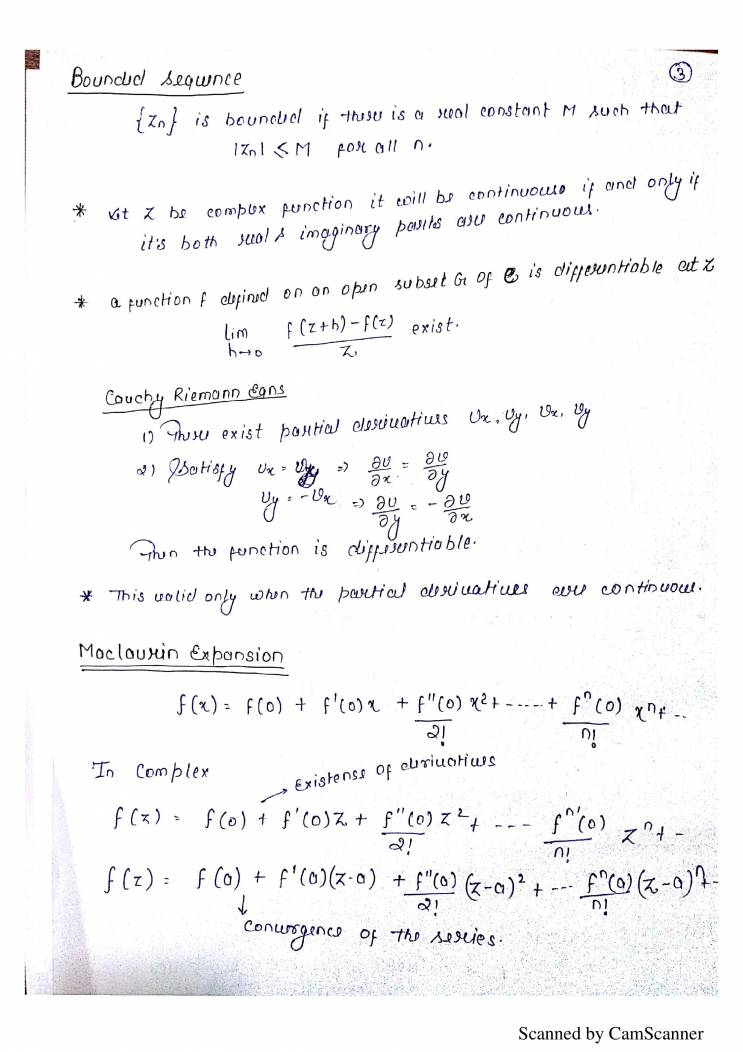 ③
Bounded sequence
{Zn} is bounded if there is a real constant M such that
|Zn| ≤ M for all n.
* let Z be complex function it will be continuous if and only if
it's both real & imaginary parts are continuous.
* a function f defined on an open subset G of ℂ is differentiable at z
lim h→0 f(z+h)-f(z) / z exist.
Cauchy Riemann Eqns
1) There exist partial derivatives Ux, Uy, Vx, Vy
2) Satisfy Ux = Vy ⇒ ∂U/∂x = ∂V/∂y
Uy = -Vx ⇒ ∂U/∂y = -∂V/∂x
Then the function is differentiable.
* This valid only when the partial derivatives are continuous.
Maclaurin Expansion
f(x) = f(0) + f'(0)x + f''(0)/2! x² + ----- + fⁿ(0)/n! xⁿ + --
In Complex
Existenss of derivatives
f(z) = f(0) + f'(0)z + f''(0)/2! z² + --- fⁿ'(0)/n! zⁿ + -
f(z) = f(a) + f'(a)(z-a) + f''(a)/2! (z-a)² + --- fⁿ(a)/n! (z-a)ⁿ -
Convergence of the series.
Scanned by CamScanner